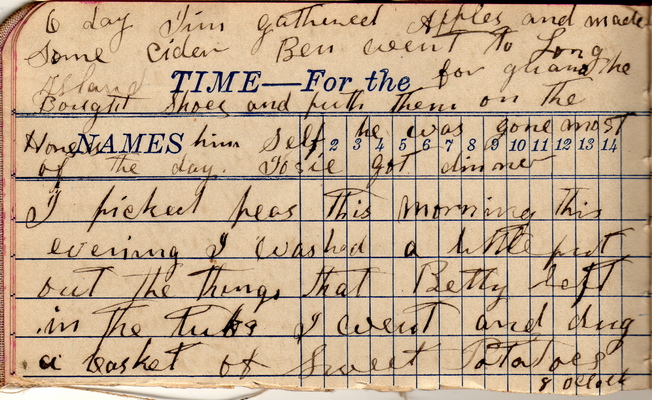 6 day Jim gathered Apples and made
Some Cider Ben went to Long
Island for guana he
TIME—For the
Bought Shoes and puth them on the
Horse him Self he was gone most
NAMES 2 3 4 5 6 7 8 9 10 11 12 13 14
of the day. Josie got dinner
I picked peas this morning this
evening I washed a little put
out the things that Betty left
in the tubs I went and dug
a basket of Sweet Potatoes
8 Oclock